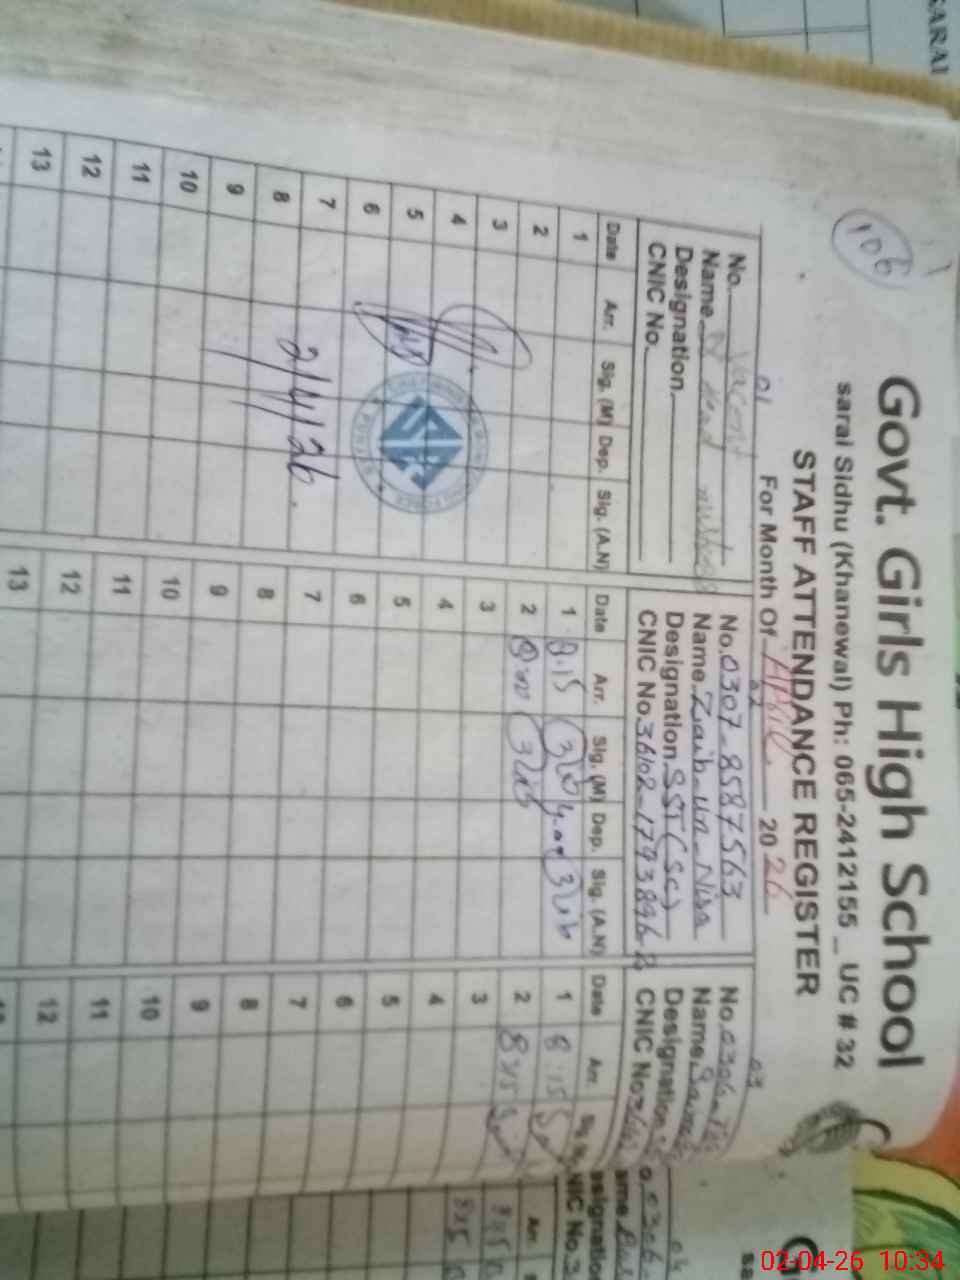 106
Govt. Girls High School
sarai Sidhu (Khanewal) Ph: 065-2412155 _ UC # 32
STAFF ATTENDANCE REGISTER
For Month Of April 2026
01
No. Vacant
Name
Designation.
CNIC No.
Date Arr. Sig. (M) Dep. Sig. (A.N)
1
2
3
4
5
6
7
8
9
10
11
12
13
2/4/26
02
No. 0307-8587563
Name Zaib-un-Nisa
Designation SST (Sc)
CNIC No 36102-1793896-2
Date Arr. Sig. (M) Dep. Sig. (A.N)
1 8.15 Zaib 4.00 Zaib
2 8:00 Zaib
3
4
5
6
7
8
9
10
11
12
13
03
No. 0306-
Name
Designation
CNIC No
Date Arr.
1 8:15
2 8:15
3
4
5
6
7
8
9
10
11
12
04
0306
CNIC No. 3
Arr
SARAI
02-04-26 10:34